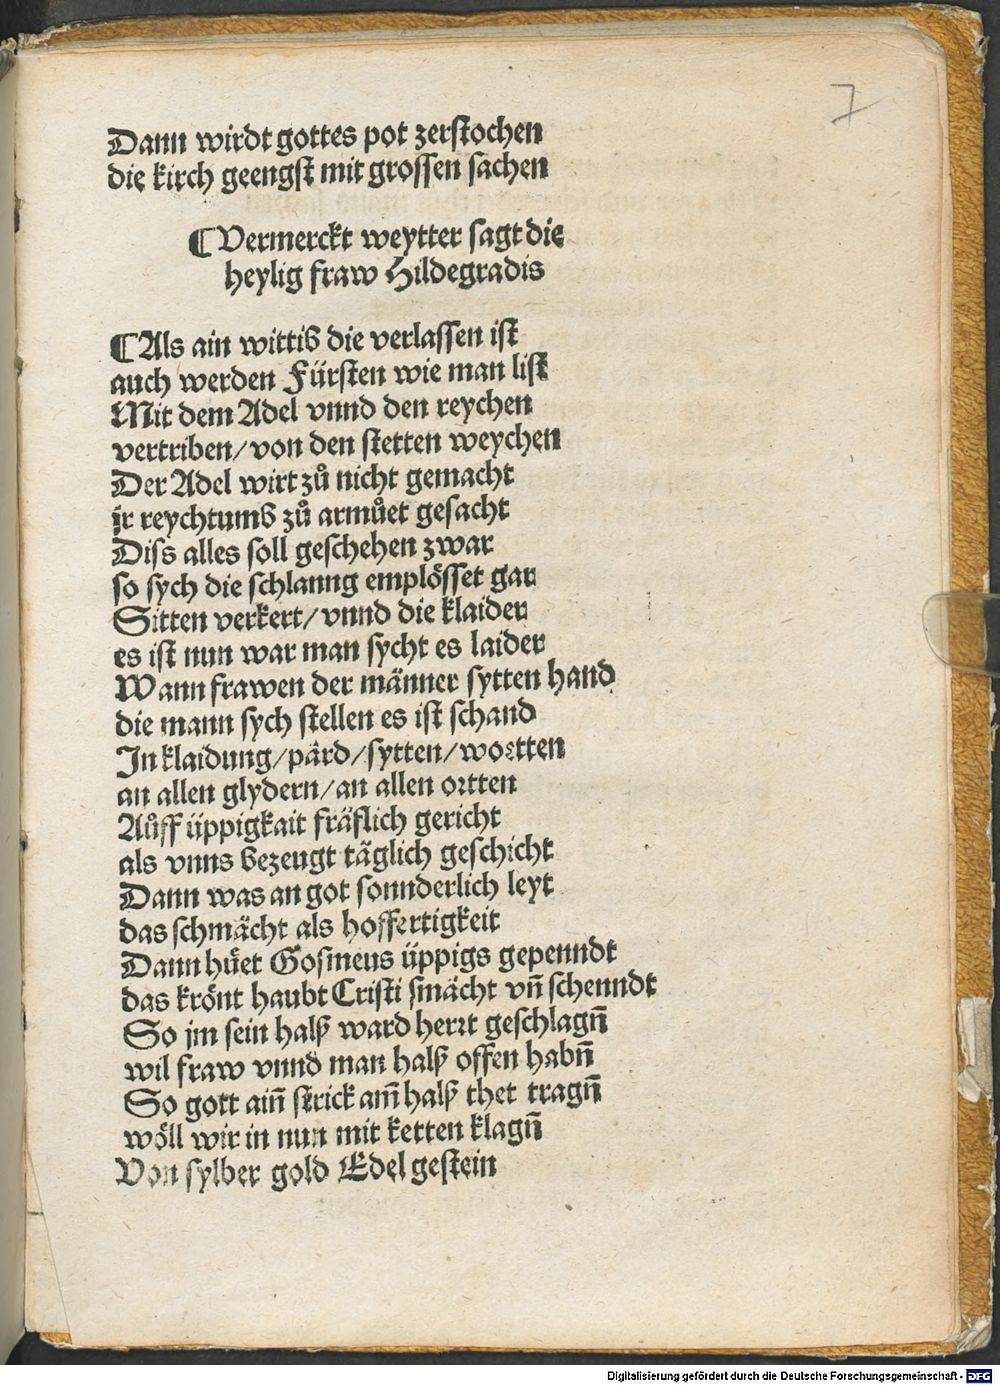 7
Dann wirdt gottes pot zerstochen
die kirch geengst mit grossen sachen
¶Vermerckt weytter sagt die
heylig fraw Hildegradis
¶Als ain wittib die verlassen ist
auch werden Fürsten wie man list
Mit dem Adel vnnd den reychen
vertriben/von den stetten weychen
Der Adel wirt zů nicht gemacht
ir reychtumb zů armůet gesacht
Diss alles soll geschehen zwar
so sych die schlanng emplösset gar
Sitten verkert/vnnd die klaider
es ist nun war man sycht es laider
Wann frawen der männer sytten hand
die mann sych stellen es ist schand
In klaidung/pärd/sytten/wortten
an allen glydern/an allen ortten
Aůff üppigkait fräflich gericht
als vnns bezeugt täglich geschicht
Dann was an got sonnderlich leyt
das schmächt als hoffertigkeit
Dann hüet Gosmeus üppigs gepenndt
das krönt haubt Cristi smächt vn̄ schenndt
So jm sein halß ward herrt geschlagn̄
wil fraw vnnd man halß offen habn̄
So gott ain̄ strick am̄ halß thet tragn̄
wöll wir in nun mit ketten klagn̄
Von sylber gold Edel gestein
Digitalisierung gefördert durch die Deutsche Forschungsgemeinschaft - DFG